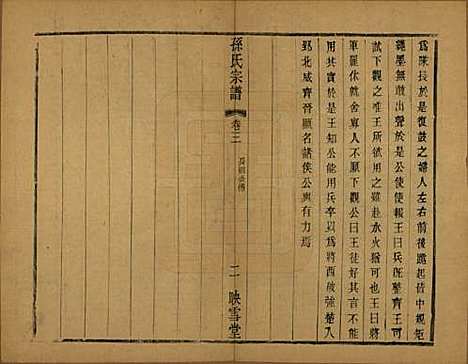 為隊長於是復鼓之婦人左右前後跪起皆中規矩
繩墨無敢出聲於是公使使報王曰兵既整齊王可
試下觀之唯王所欲用之雖赴水火猶可也王曰將
軍罷休就舍寡人不願下觀公曰王徒好其言不能
用其實於是王知公能用兵卒以為將西破強楚入
郢北威齊晉顯名諸侯公與有力焉
孫氏宗譜
卷三
二
映雪堂